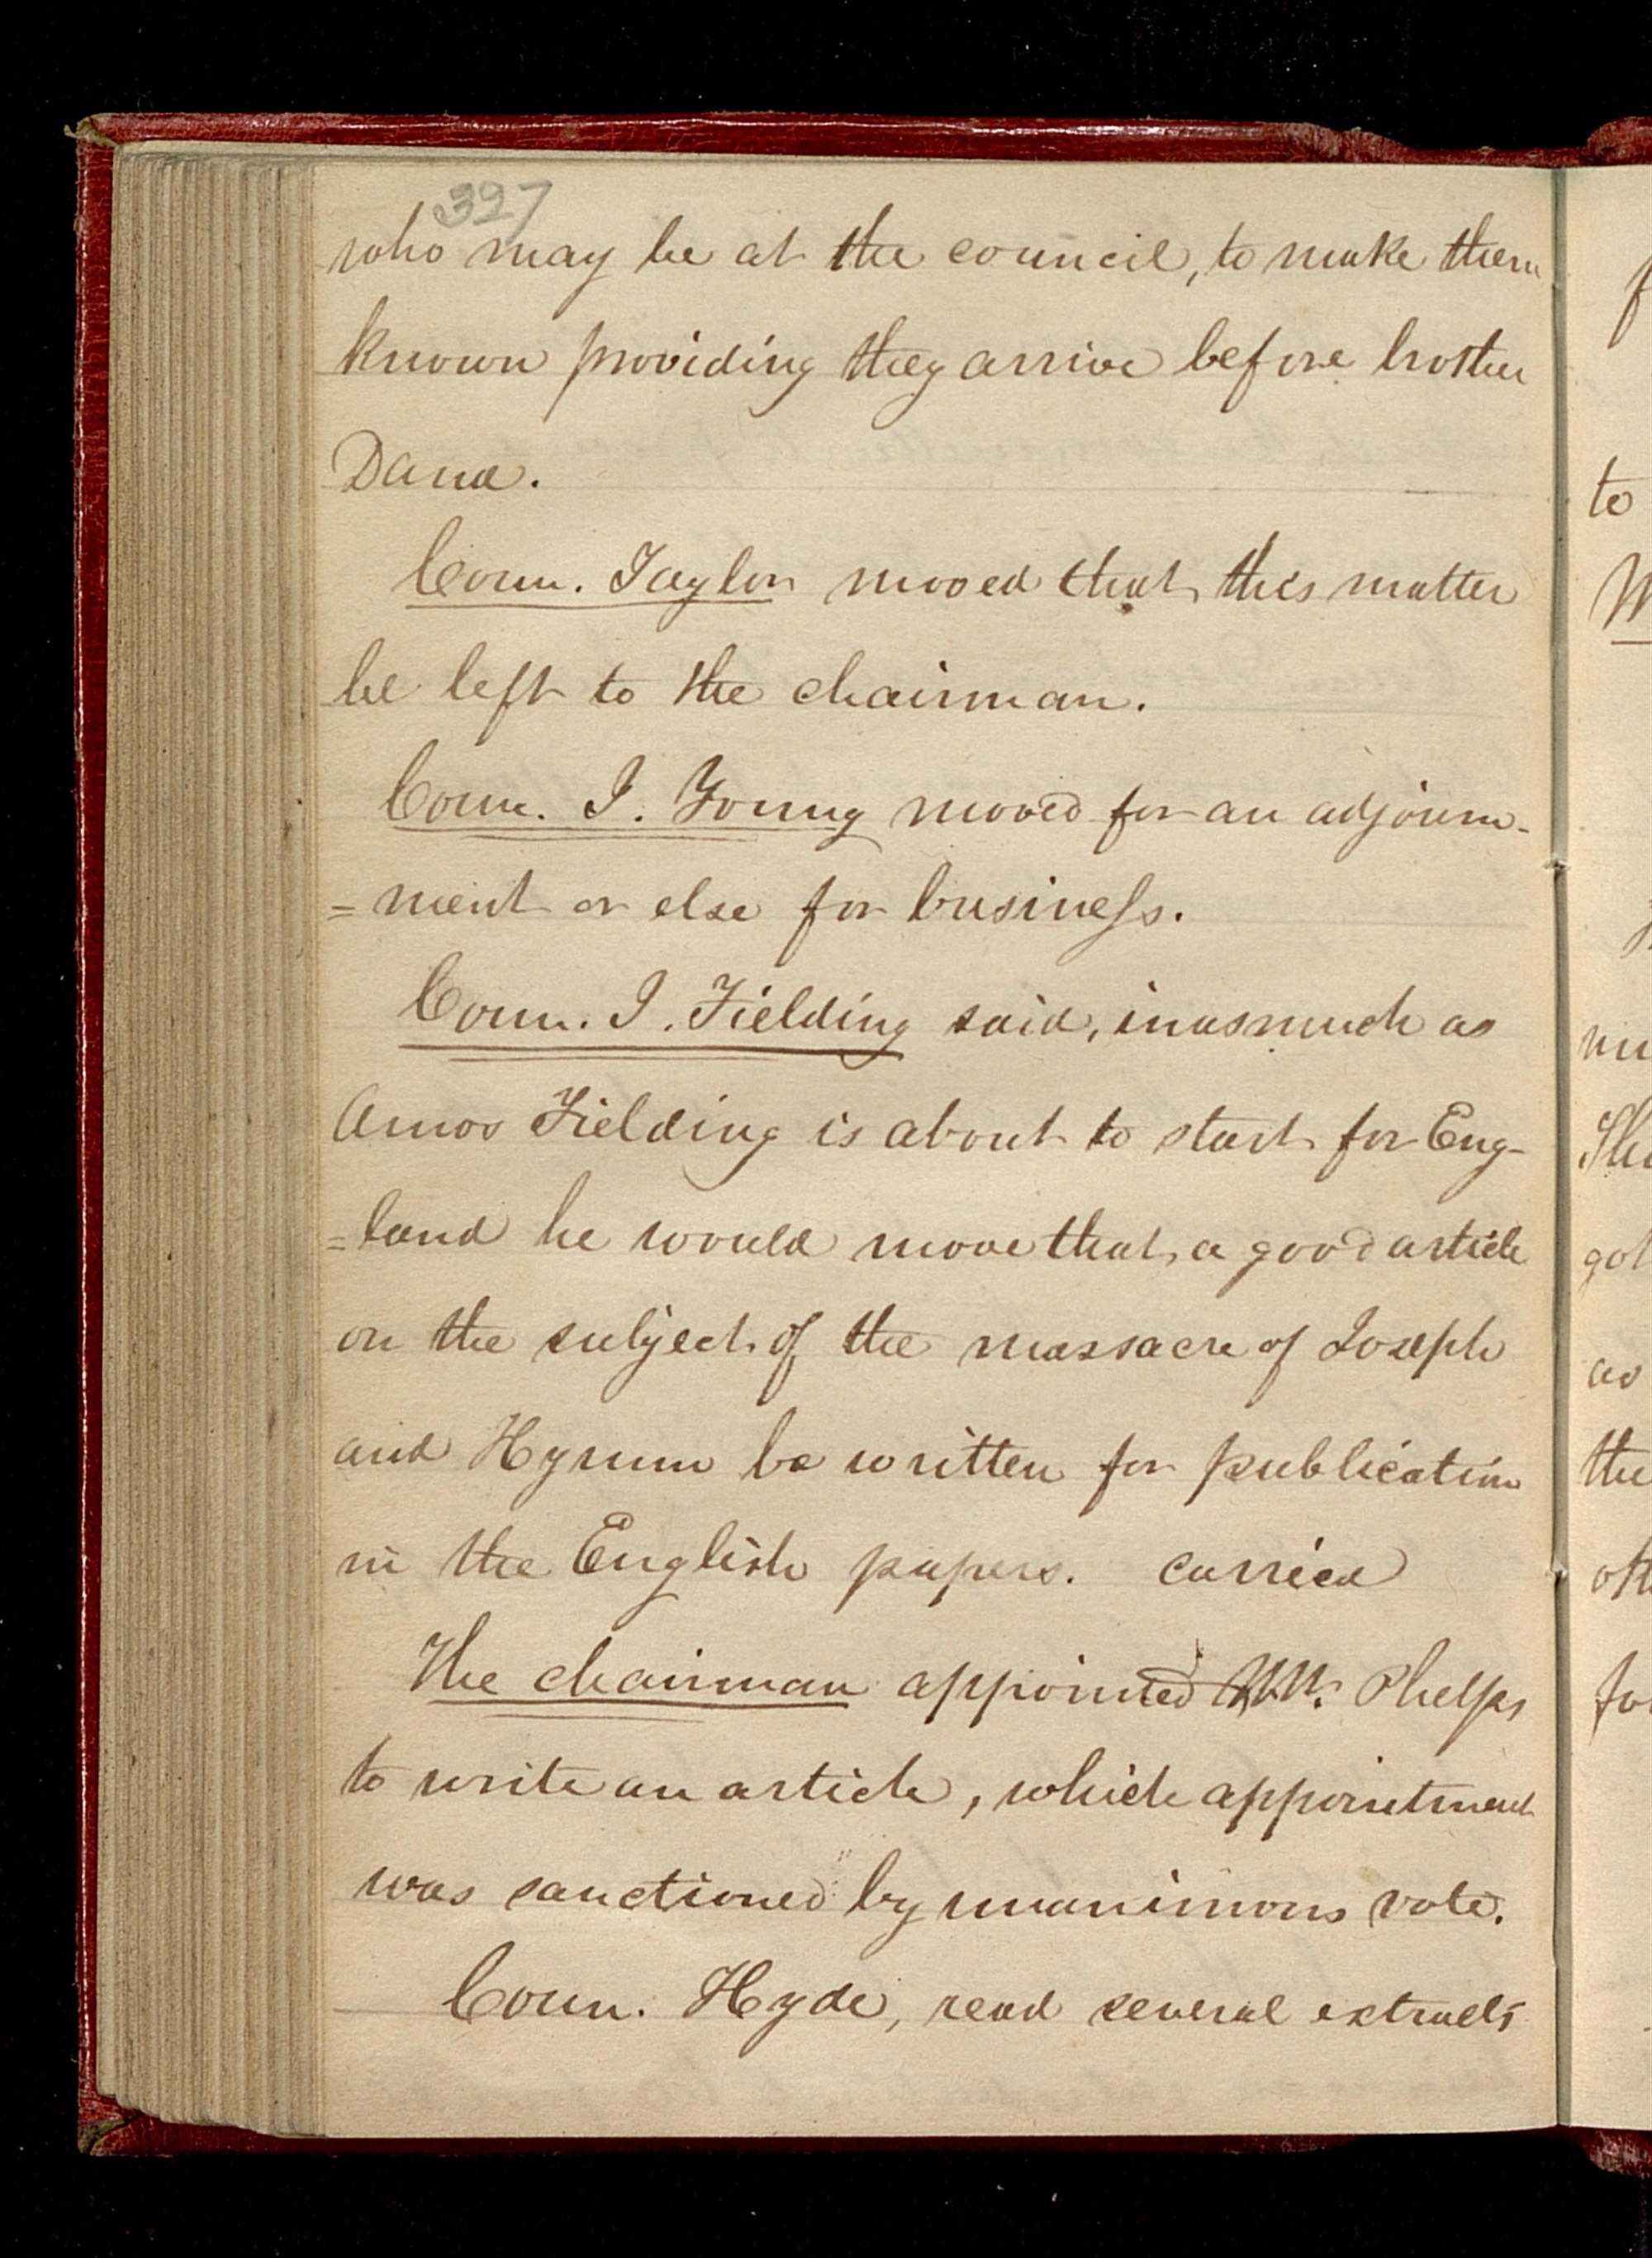 327
who may be at the council, to make them
known providing they arrive before brother
Dana.
Coun. Taylor moved that this matter
be left to the chairman.
Coun. J. Young moved for an adjourn-
=ment or else for business.
Coun. J. Fielding said, inasmuch as
Amos Fielding is about to start for Eng-
=land he would move that a good article
on the subject of the massacre of Joseph
and Hyrum be written for publication
in the English papers. carried
The chairman appointed W. W. Phelps
to write an article, which appointment
was sanctioned by unanimous vote.
Coun. Hyde, read several extracts
to
the